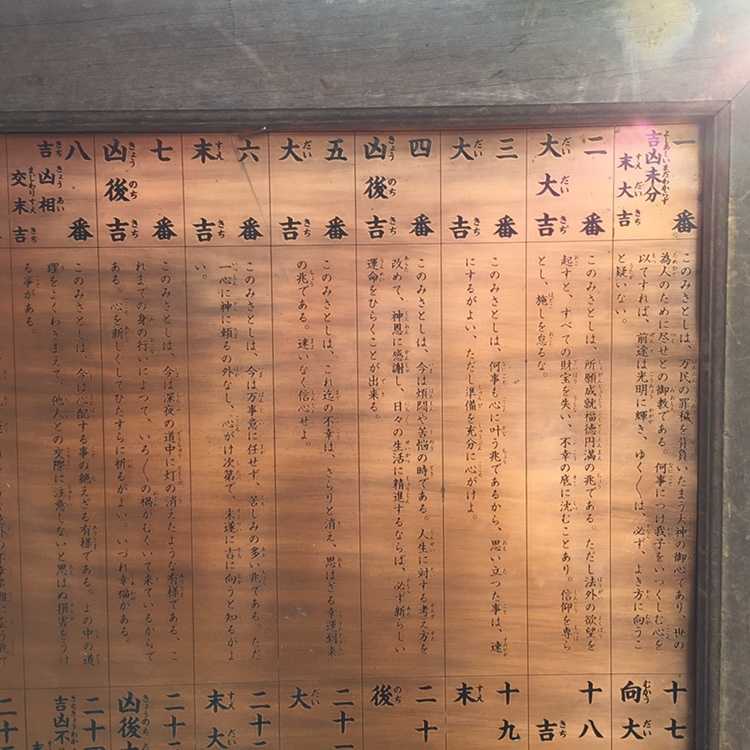 一番
吉凶未分
末大吉
このみさとしは、万民の罪穢を背負いたまう大神の御心であり、世の
為人のために尽せとの御教である。何事につけ我子をいつくしむ心を
以てすれば、前途は光明に輝き、ゆく〱は、必ず、よき方に向うこ
と疑いない。
二番
大大吉
このみさとしは、所願成就福徳円満の兆である。ただし法外の欲望を
起すと、すべての財宝を失い、不幸の底に沈むことあり。信仰を専ら
とし、施しを怠るな。
三番
大吉
このみさとしは、何事も心に叶う兆であるから、思い立つた事は、速
にするがよい、ただし準備を充分に心がけよ。
四番
凶後吉
このみさとしは、今は煩悶や苦悩の時である。人生に対する考え方を
改めて、神恩に感謝し、日々の生活に精進するならば、必ず新らしい
運命をひらくことが出来る。
五番
大吉
このみさとしは、これ迄の不幸は、さらりと消え、思はざる幸運到来
の兆である。迷いなく信心せよ。
六番
末吉
このみさとしは、今は万事意に任せず、苦しみの多い兆である。ただ
一心に神に頼るの外なし、心がけ次第で、末遂に吉に向うと知るがよ
い。
七番
凶後吉
このみさとしは、今は深夜の道中に灯の消えたような有様である、こ
れまでの身の行いによつて、いろ〱の禍がむくいて来ているからで
ある、心を新しくしてひたすらに祈るがよい、いづれ幸福がある。
八番
吉凶相
交末吉
このみさとしは、今は心配する事の絶えざる有様である。よの中の道
理をよくわきまえて、他人との交際に注意しないと思はぬ損害をうけ
る事がある。
十七
向大
十八
吉
十九
末
二十
後
二十一
大
二十二
末大
二十三
凶後大
二十四
吉凶不
二十